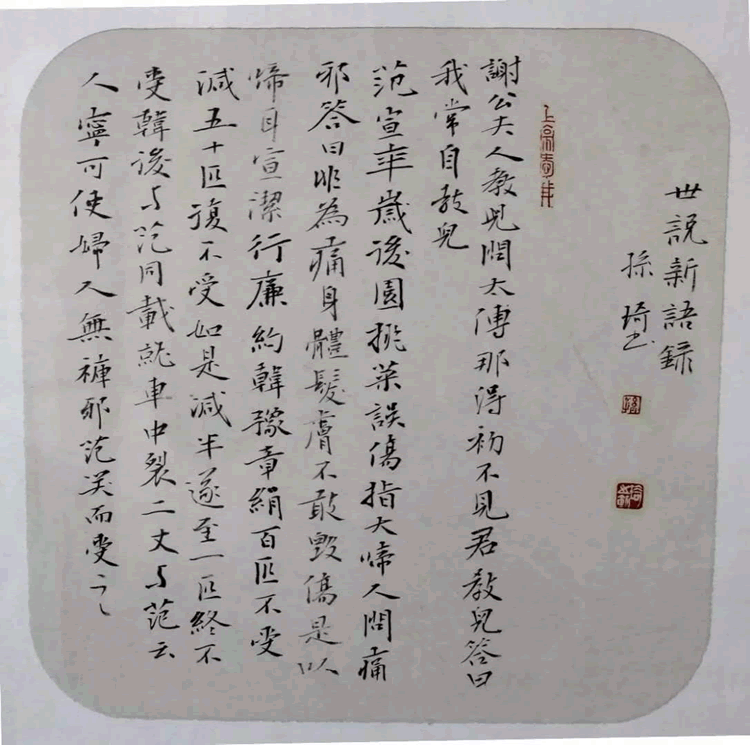 世説新語録
孫琦书
謝公夫人教兒問太傅那得初不見君教兒答曰
我常自教兒
范宣年歲後園挑菜誤傷指大啼人問痛
邪答曰非為痛身體髮膚不敢毀傷是以
啼耳宣潔行廉約韓豫章絹百匹不受
減五十匹復不受如是減半遂至一匹終不
受韓後与范同載就車中裂二丈与范云
人寧可使婦人無褌邪范笑而受之